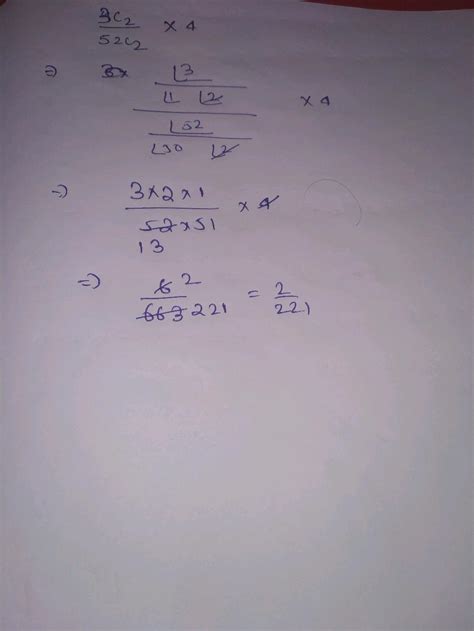 3C₂/52C₂ × 4
⇒ (⌊3/(⌊1 ⌊2))/(⌊52/(⌊50 ⌊2)) × 4
⇒ (3×2×1)/(52×51) × 4
13
⇒ 6 2/663 221 = 2/221